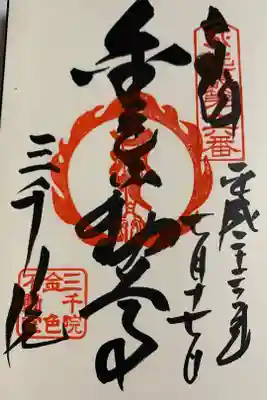 奉拝
平成二十三年
七月十七日
金色不動尊
三千院
三千院
金色
不動堂